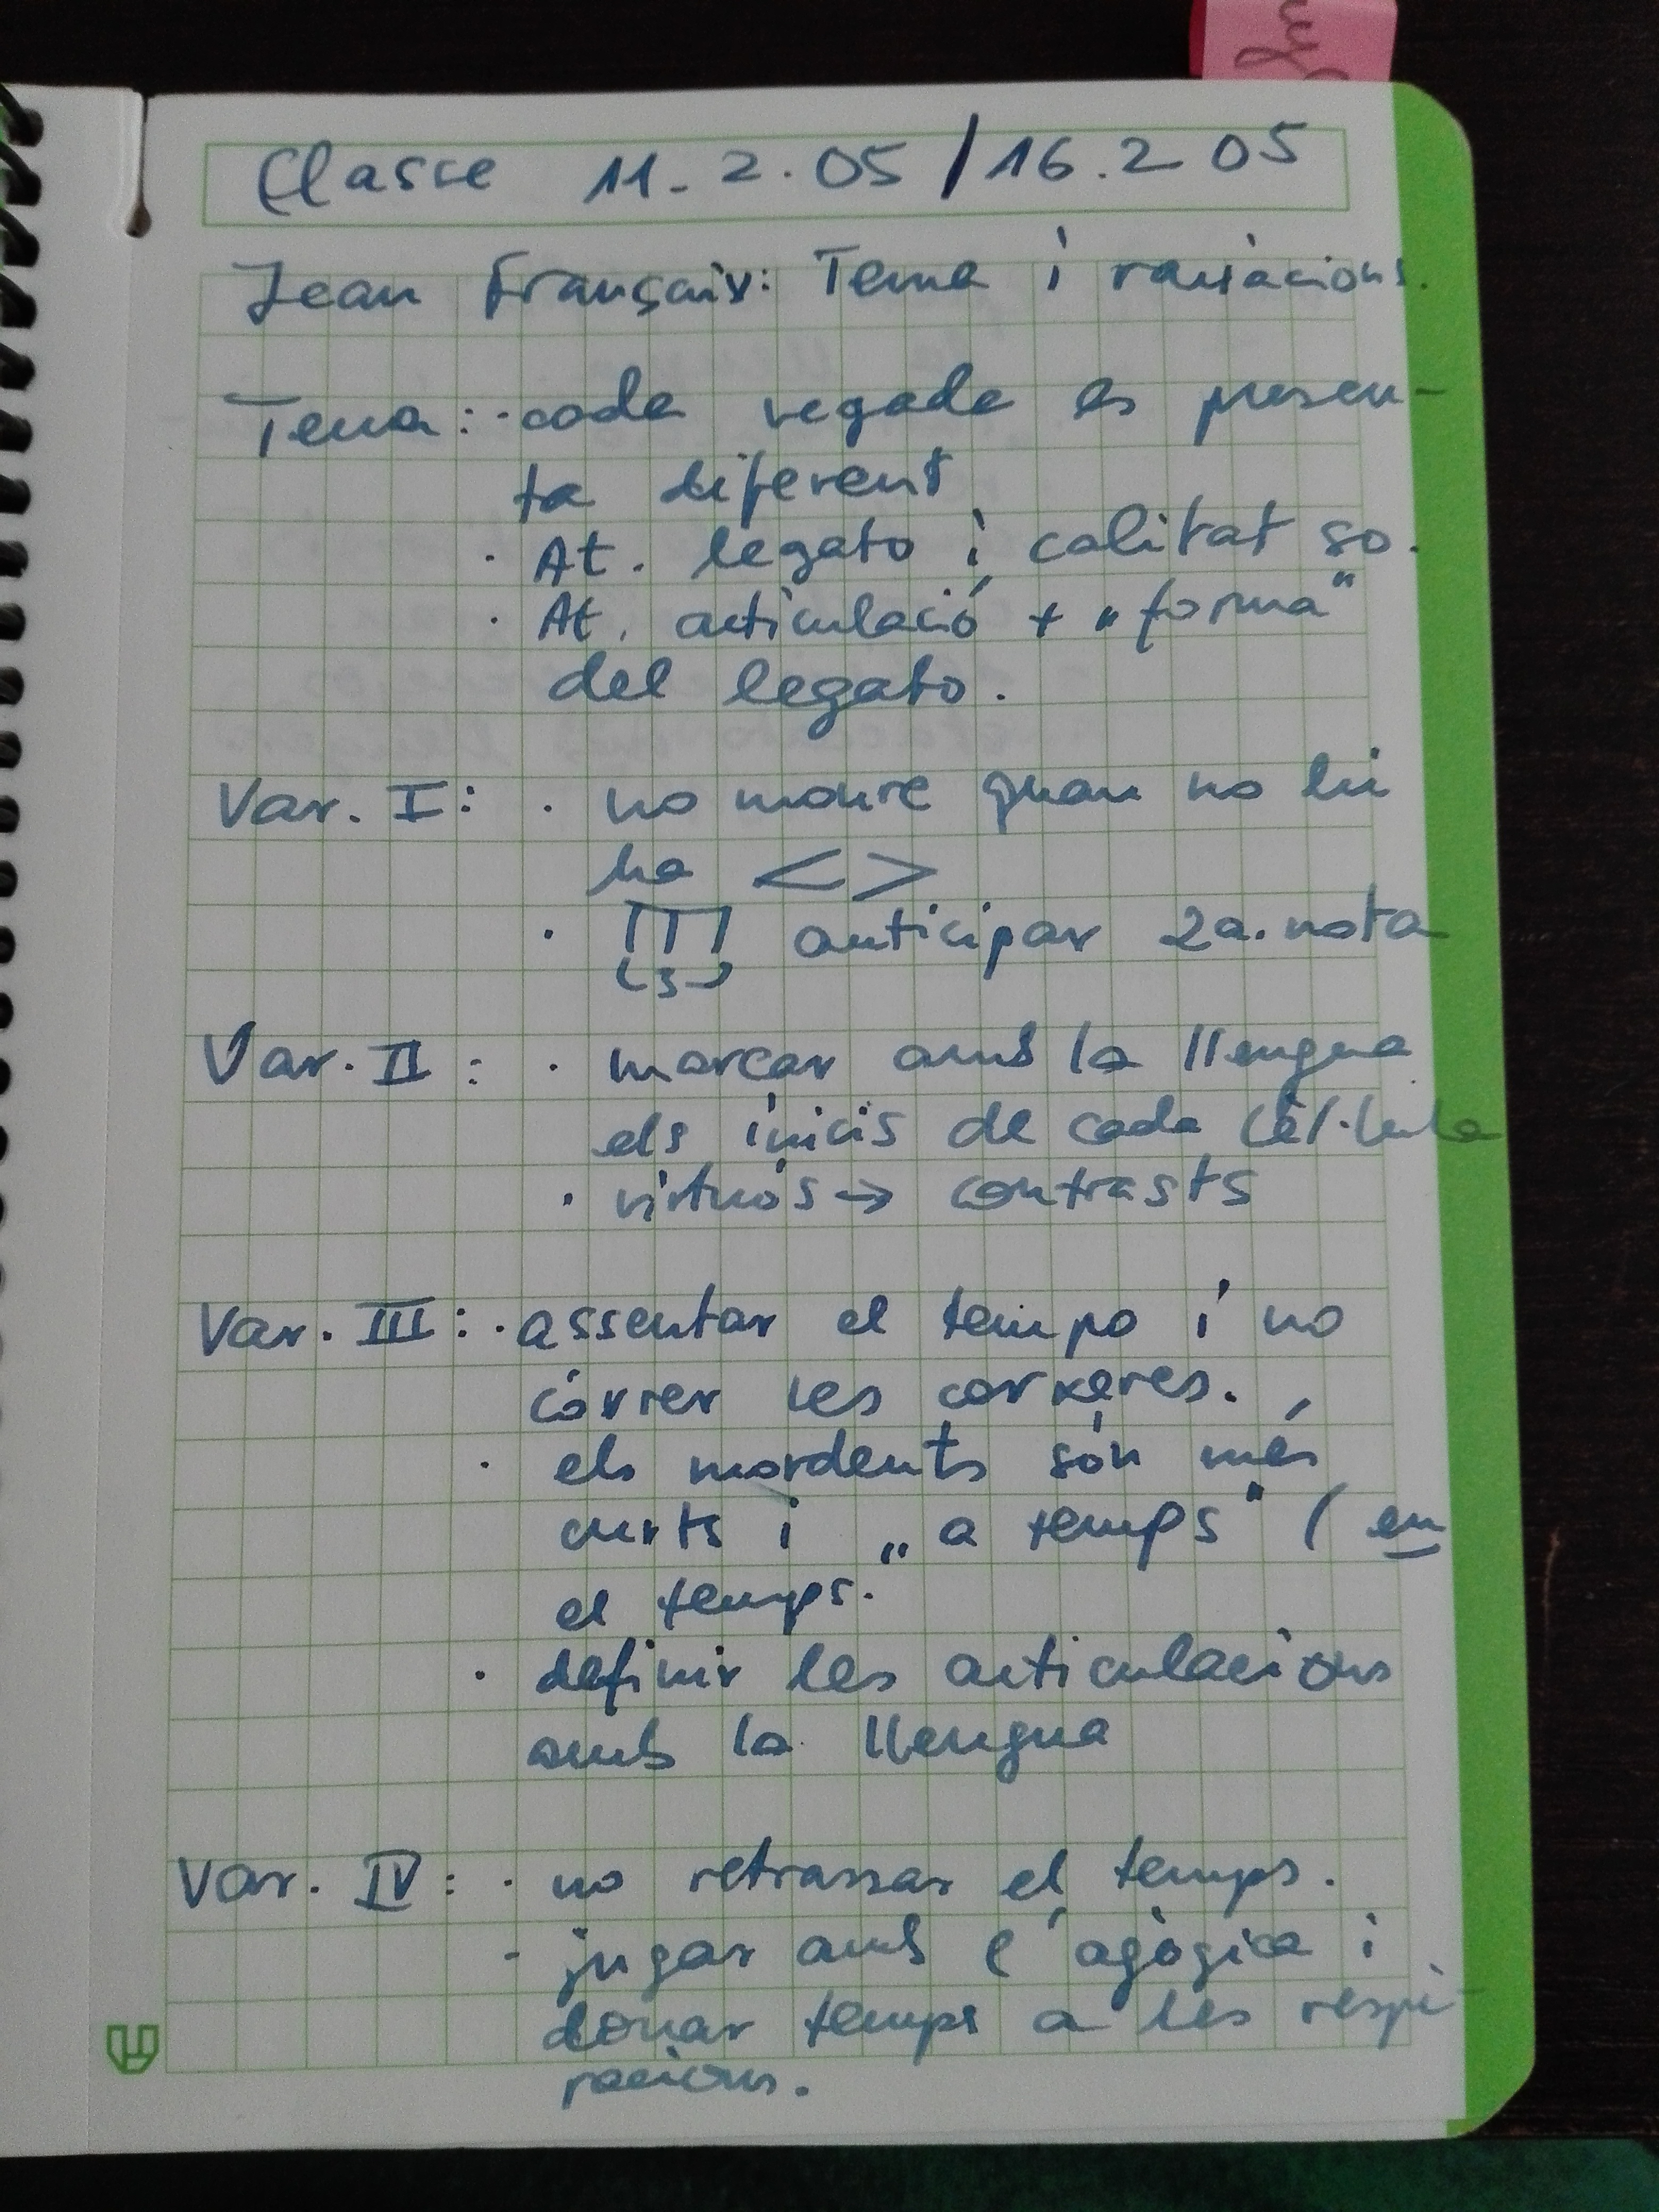 Classe 11. 2. 05 / 16. 2 05
Jean Françaix: Tema i variacions.
Tema: · cada vegada es presen-
ta diferent
· At. legato i calitat so.
· At. articulació + „forma"
del legato.
Var. I: · no moure quan no hi
ha < >
· 3 anticipar 2a. nota
Var. II: · marcar amb la llengua
els inicis de cada cèl·lula
· virtuós → contrasts
Var. III: · assentar el tempo i no
córrer les corxeres.
· els mordents són més
curts i „a temps" (en
el temps.
· definir les articulacions
amb la llengua
Var. IV: · no retrassar el temps.
- jugar amb l'agògica i
donar temps a les respi-
racions.